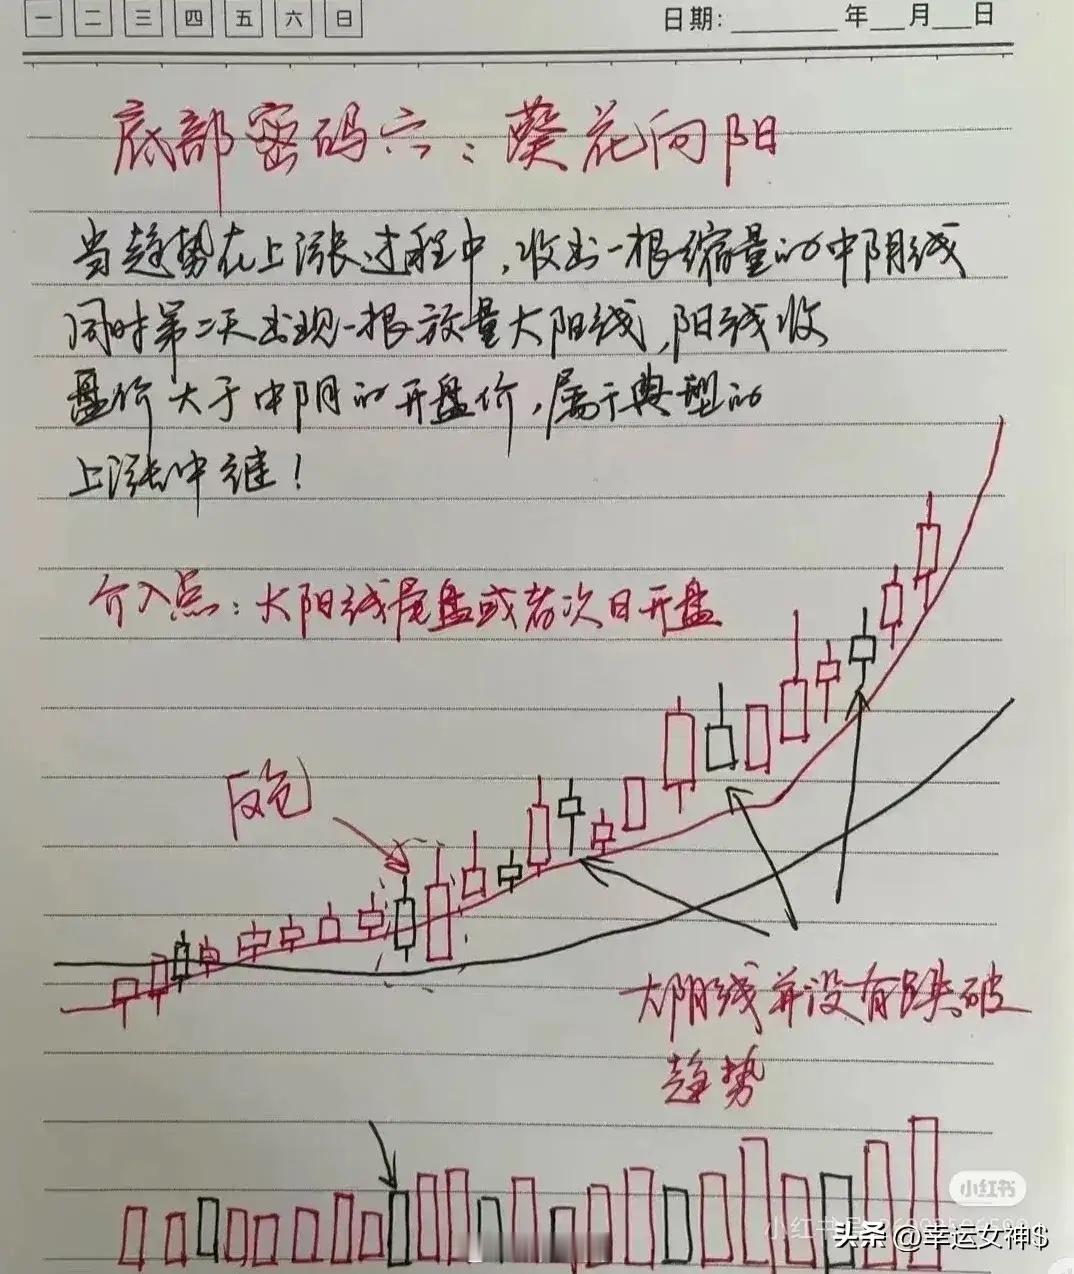 一 二 三 四 五 六 日 日期: 年 月 日
底部密码六：葵花向阳
当趋势在上涨过程中，收出一根缩量的中阴线
同时第二天出现一根放量大阳线，阳线收
盘价大于中阴的开盘价，属于典型的
上涨中继！
介入点：大阳线尾盘或者次日开盘
反包
大阴线并没有跌破
趋势
小红书
头条 @幸运女神$